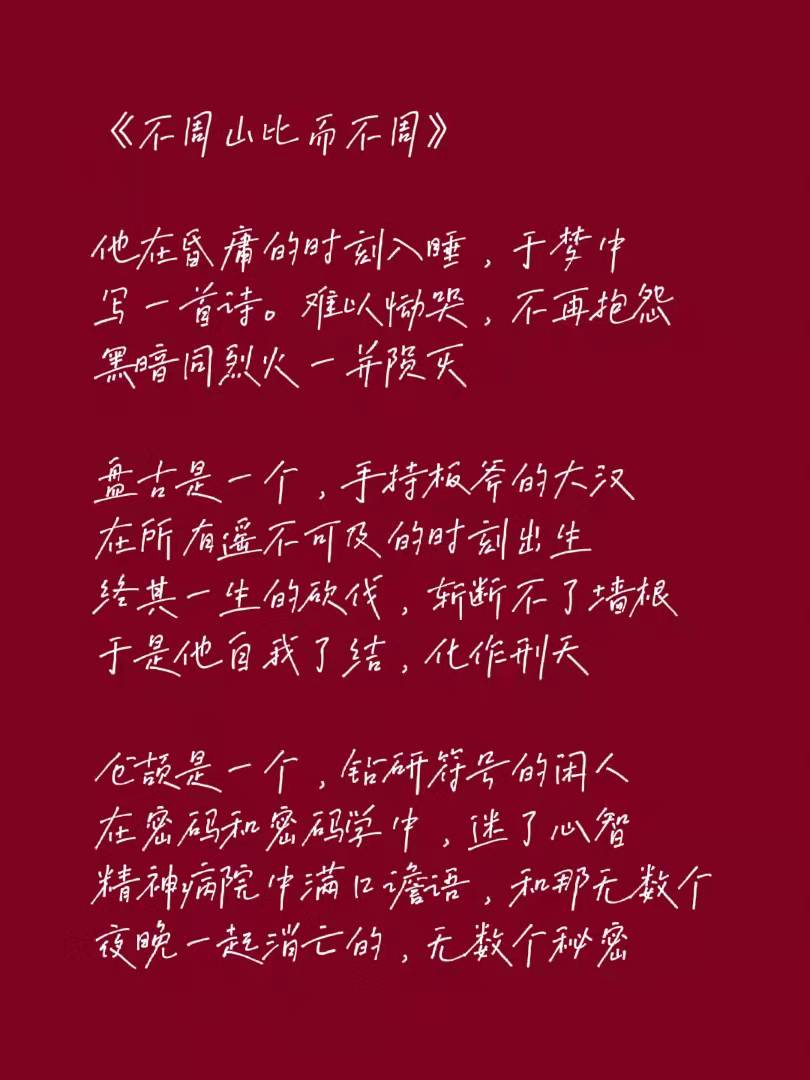 《不周山比而不周》
他在昏庸的时刻入睡，于梦中
写一首诗。难以恸哭，不再抱怨
黑暗同烈火一并陨灭
盘古是一个，手持板斧的大汉
在所有遥不可及的时刻出生
终其一生的砍伐，斩断不了墙根
于是他自我了结，化作刑天
仓颉是一个，钻研符号的闲人
在密码和密码学中，迷了心智
精神病院中满口谵语，和那无数个
夜晚一起消亡的，无数个秘密